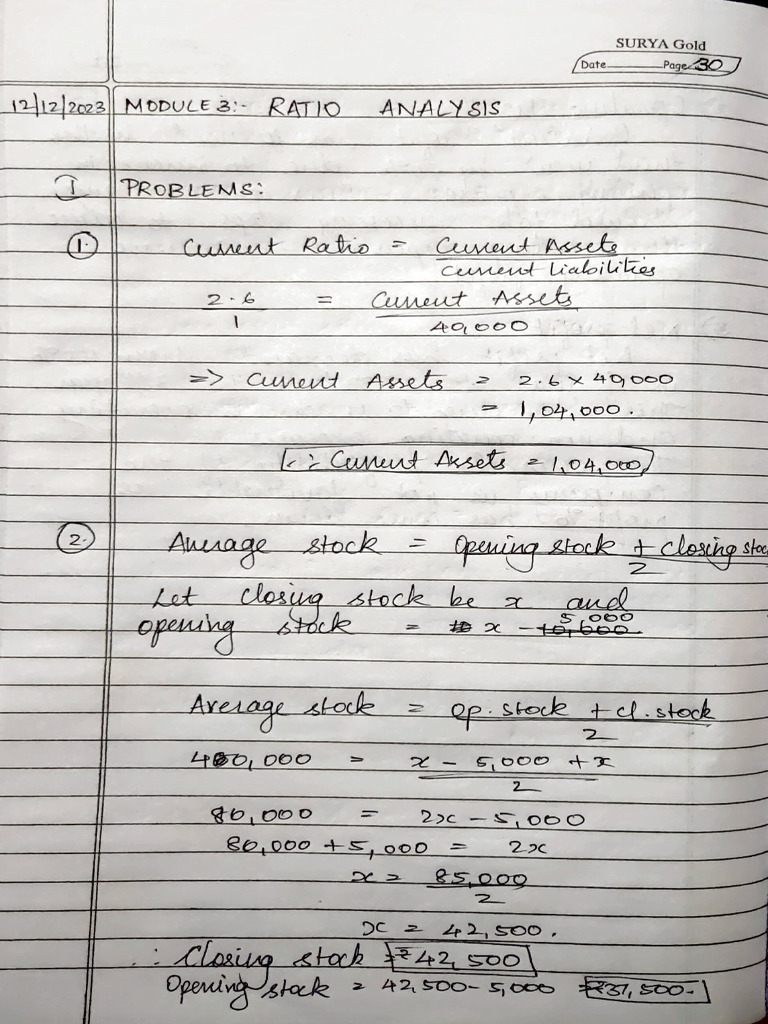 SURYA Gold
Date Page 30
12/12/2023 MODULE 3:- RATIO ANALYSIS
I PROBLEMS:
1. Current Ratio = Current Assets
Current Liabilities
2.6 = Current Assets
1 40,000
=> Current Assets = 2.6 × 40,000
= 1,04,000.
∴ Current Assets = 1,04,000
2. Average stock = Opening stock + Closing stoc
2
Let closing stock be x and
5,000
opening stock = x - 10,000
Average stock = Op. stock + cl. stock
2
40,000 = x - 5,000 + x
2
80,000 = 2x - 5,000
80,000 + 5,000 = 2x
x = 85,000
2
x = 42,500.
∴ Closing stock = ₹42,500
Opening stock = 42,500 - 5,000 = ₹37,500-